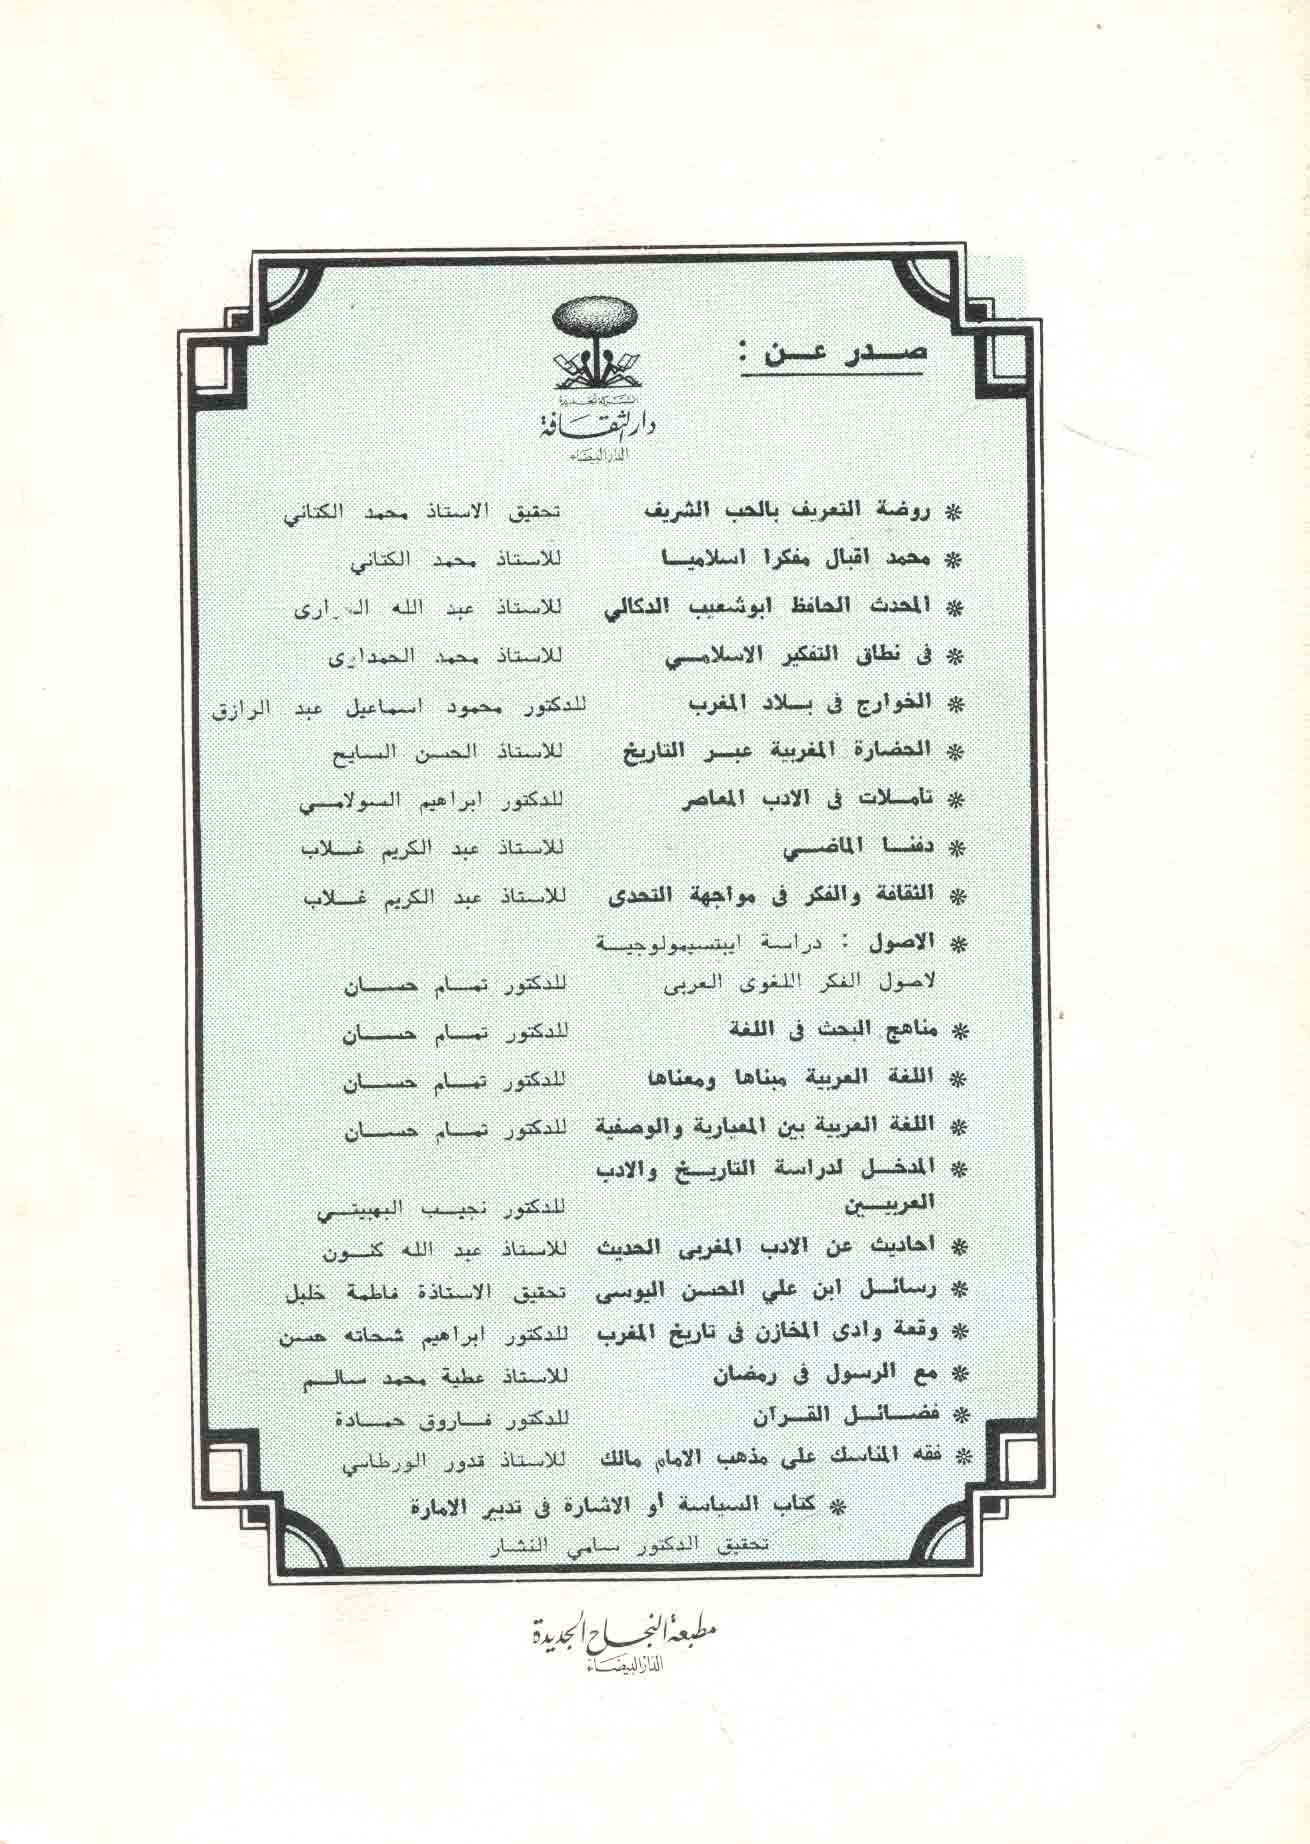 صدر عن :
دار الثقافة
الدار البيضاء
* روضة التعريف بالحب الشريف تحقيق الاستاذ محمد الكتاني
* محمد اقبال مفكرا اسلاميا للاستاذ محمد الكتاني
* المحدث الحافظ ابوشعيب الدكالي للاستاذ عبد الله
* فى نطاق التفكير الاسلامي للاستاذ محمد الحمداوى
* الخوارج فى بلاد المغرب للدكتور محمود اسماعيل عبد الرازق
* الحضارة المغربية عبر التاريخ للاستاذ الحسن السايح
* تاملات فى الادب المعاصر للدكتور ابراهيم السولامي
* دفنا الماضي للاستاذ عبد الكريم غلاب
* الثقافة والفكر فى مواجهة التحدى للاستاذ عبد الكريم غلاب
* الاصول : دراسة ايبتسيمولوجية
لاصول الفكر اللغوى العربى للدكتور تمام حسان
* مناهج البحث فى اللغة للدكتور تمام حسان
* اللغة العربية مبناها ومعناها للدكتور تمام حسان
* اللغة العربية بين المعيارية والوصفية للدكتور تمام حسان
* المدخل لدراسة التاريخ والادب
العربيين للدكتور نجيب البهبيتي
* احاديث عن الادب المغربى الحديث للاستاذ عبد الله كنون
* رسائل ابن علي الحسن اليوسى تحقيق الاستاذة فاطمة خليل
* وقعة وادى المخازن فى تاريخ المغرب للدكتور ابراهيم شحاته حسن
* مع الرسول فى رمضان للاستاذ عطية محمد سالم
* فضائل القرآن للدكتور فاروق حمادة
* فقه المناسك على مذهب الامام مالك للاستاذ قدور الورطاسي
* كتاب السياسة أو الاشارة فى تدبير الامارة
تحقيق الدكتور سامي النشار
مطبعة النجاح الجديدة
الدار البيضاء